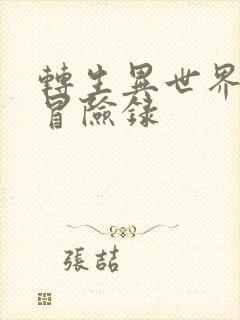 轉生異世界
冒險錄
張喆